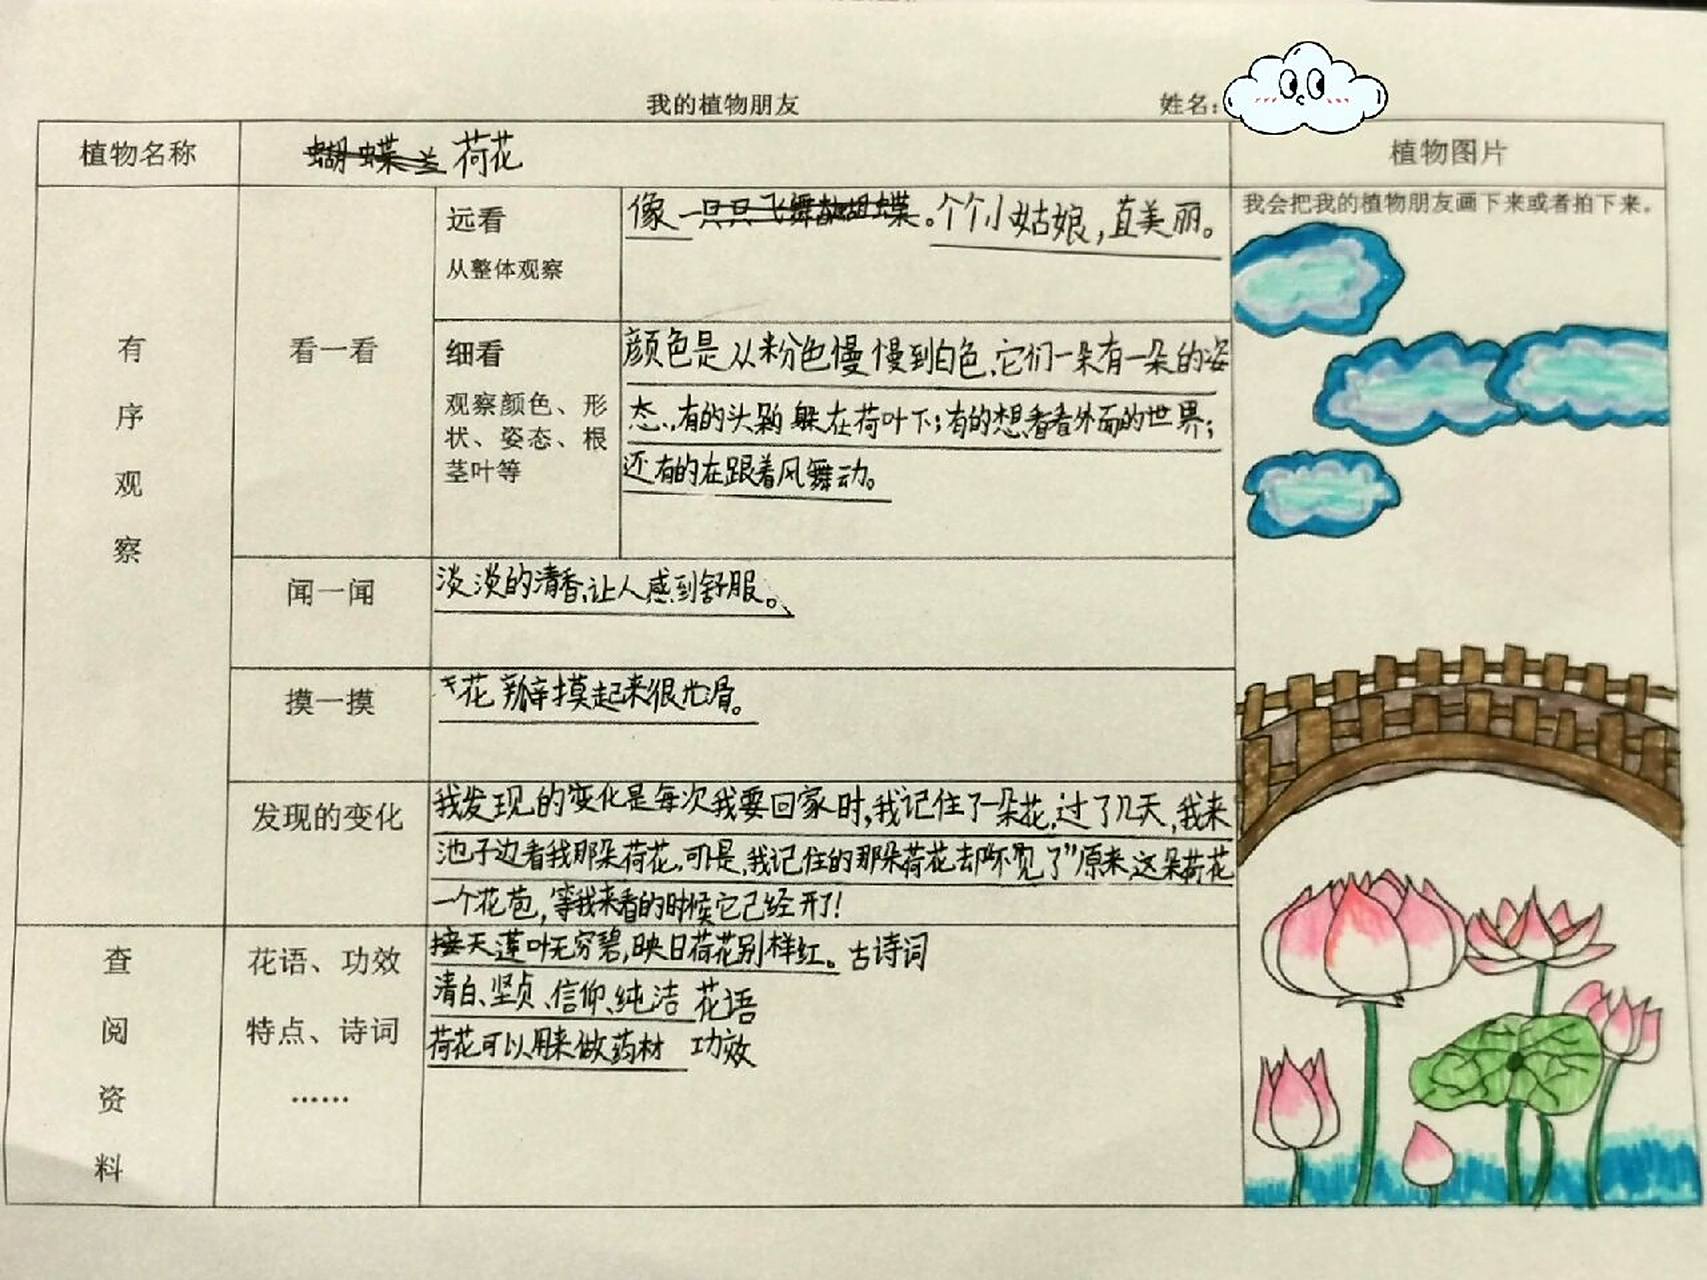 我的植物朋友
姓名:
植物名称
蝴蝶兰荷花
植物图片
有序观察
看一看
远看
从整体观察
像一只只飞舞的蝴蝶。个个小姑娘,直美丽。
我会把我的植物朋友画下来或者拍下来。
细看
观察颜色、形
状、姿态、根
茎叶等
颜色是从粉色慢慢到白色、它们一朵有一朵的姿
态、有的头躲在荷叶下;有的想看看外面的世界;
还有的在跟着风舞动。
闻一闻
淡淡的清香,让人感到舒服。
摸一摸
花瓣摸起来很光滑。
发现的变化
我发现的变化是每次我要回家时,我记住了一朵花,过了几天,我来
池子边看我那朵荷花,可是,我记住的那朵荷花却“不见了”原来,这朵荷花
一个花苞,等我来看的时候它已经开了!
查阅资料
花语、功效
特点、诗词
……
接天莲叶无穷碧,映日荷花别样红。古诗词
清白、坚贞、信仰、纯洁 花语
荷花可以用来做药材 功效